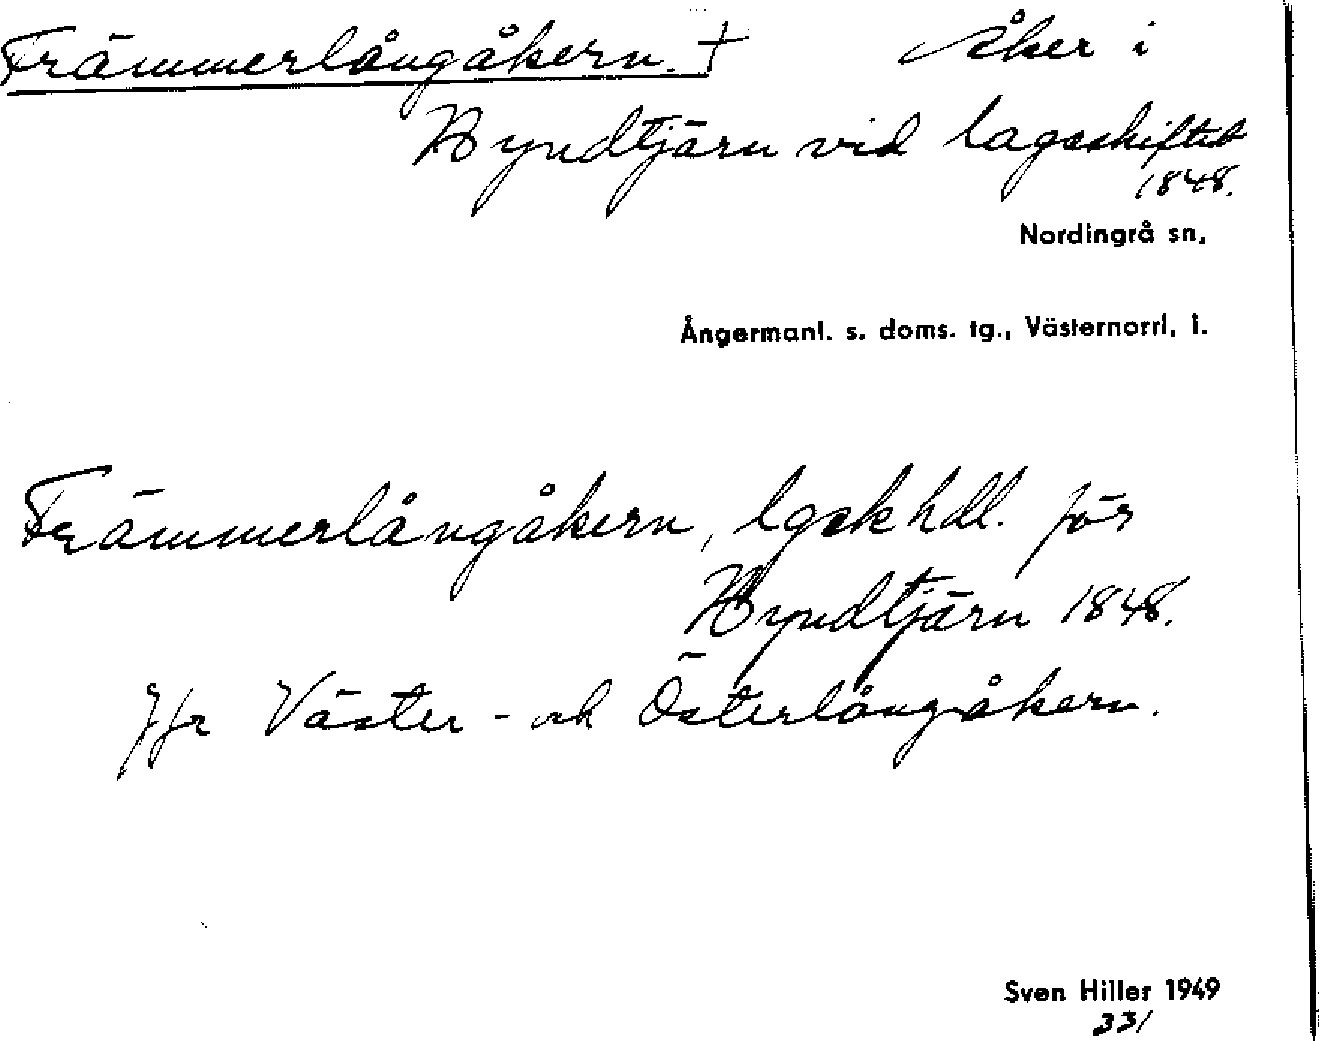 Främmerlångåkern. † Åker i
Hyndtjärn vid lagaskiftet
1848.
Nordingrå sn,
Ångermanl. s. doms. tg., Västernorrl. l.
Främmerlångåkern, lgskhdl. för
Hyndtjärn 1848.
Jfr Väster- och Österlångåkern.
Sven Hiller 1949
331